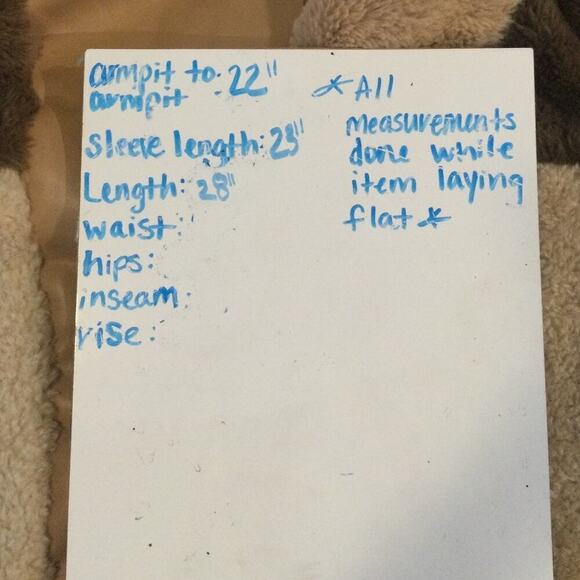 armpit to: 22"
armpit
sleeve length: 23"
Length: 28"
waist:
hips:
inseam:
rise:
*All
measurements
done while
item laying
flat*